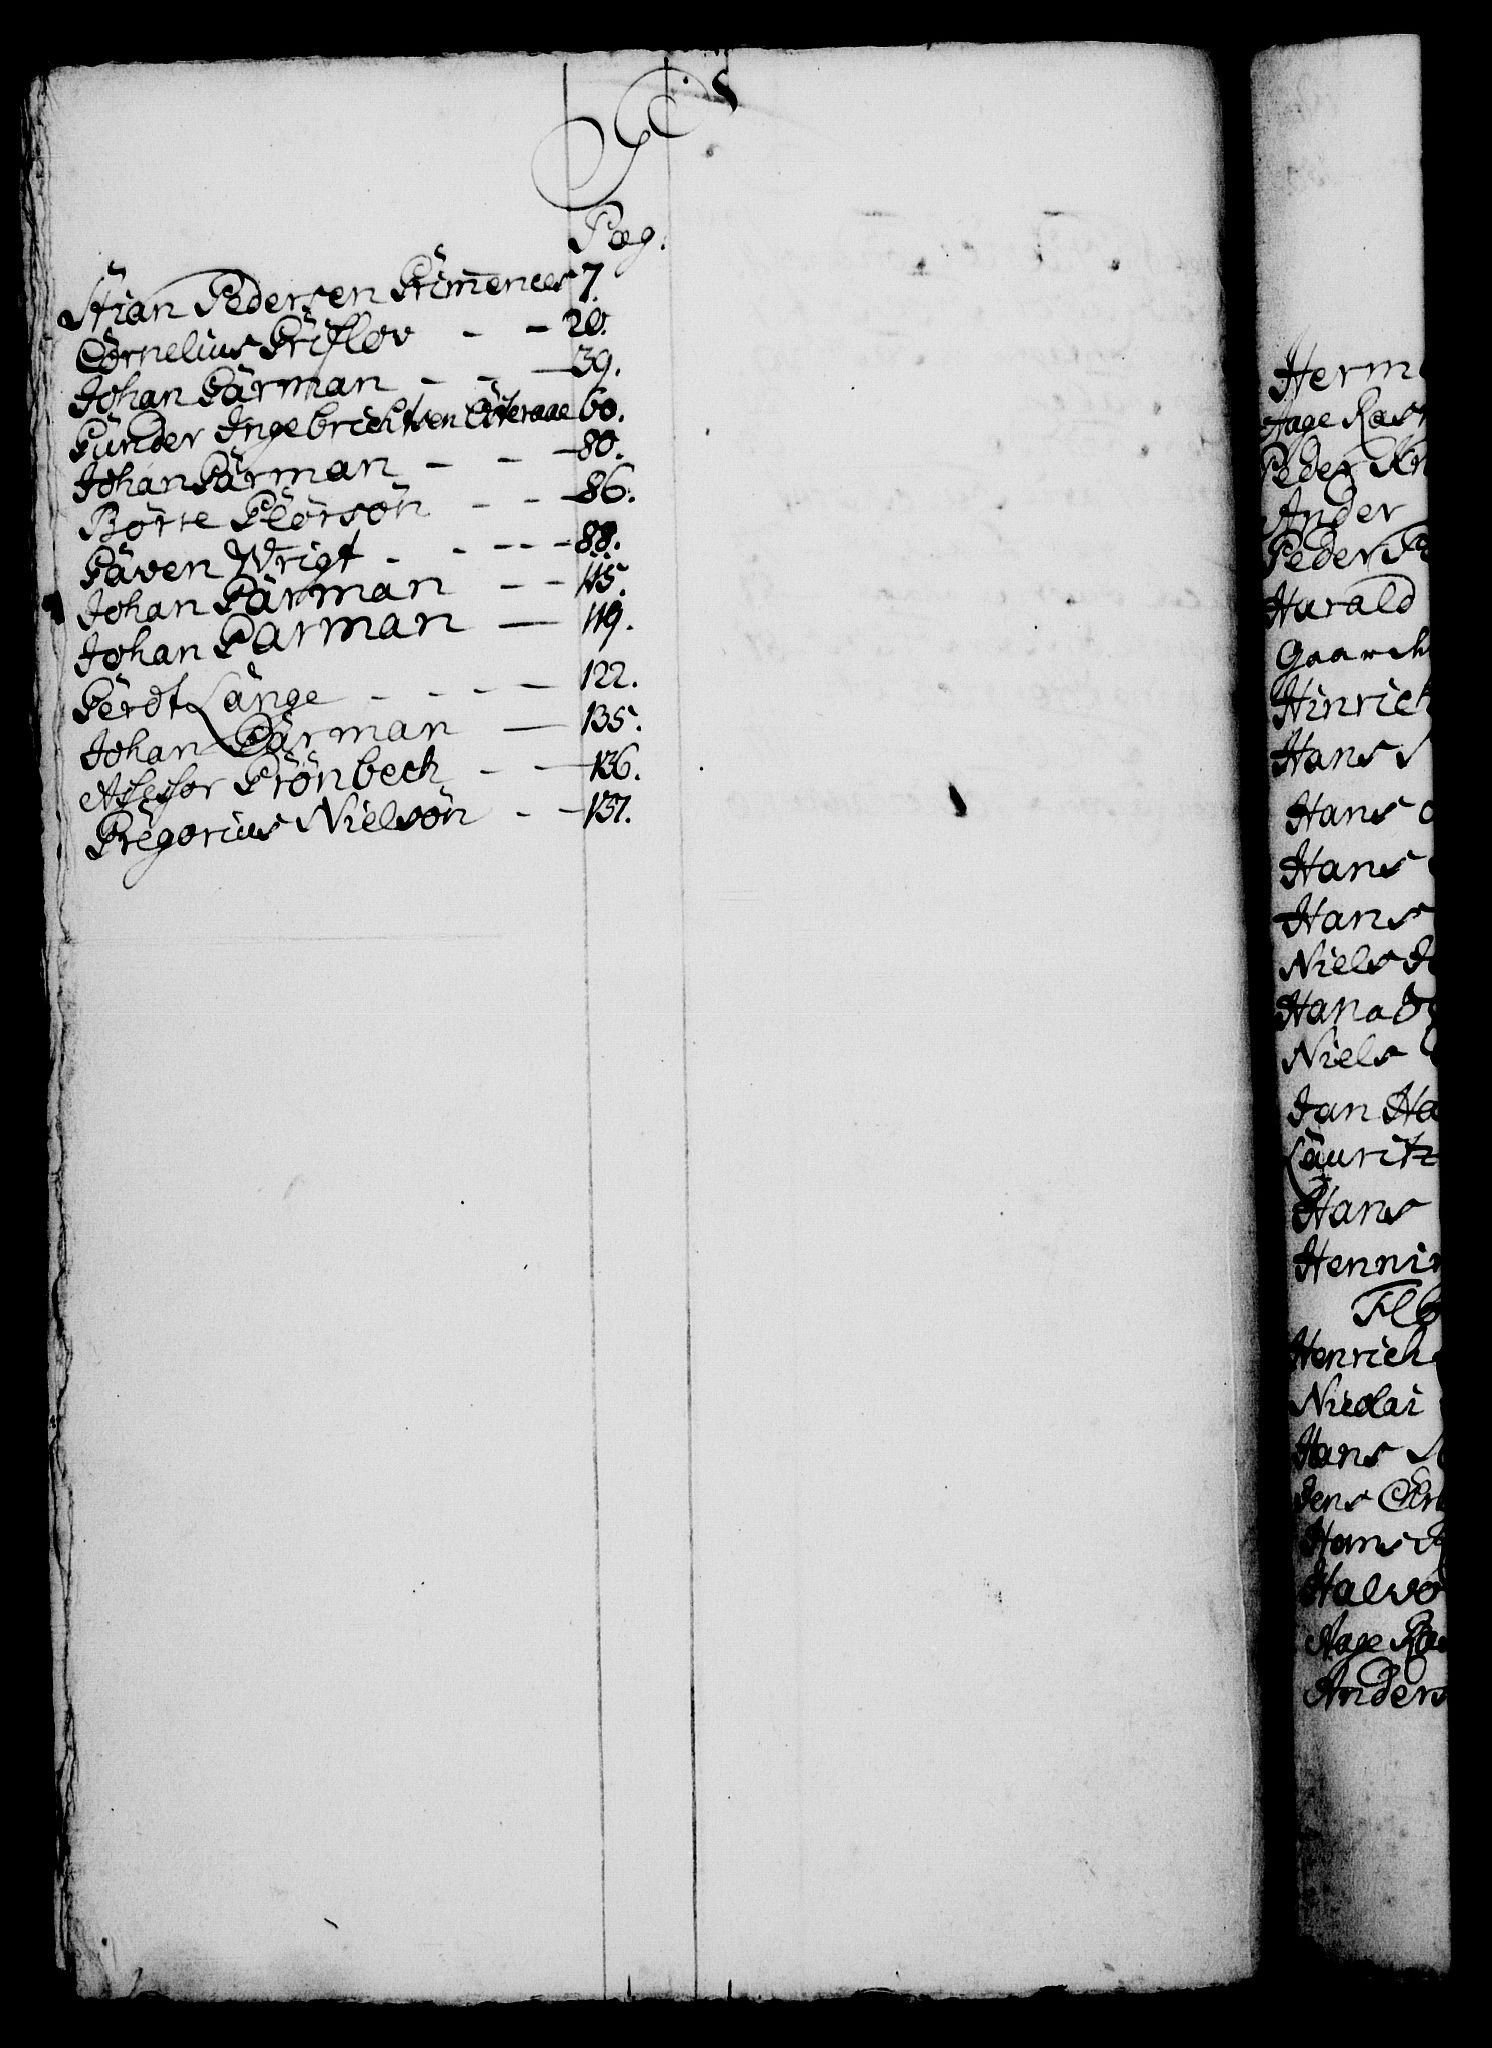 G
Pag.
Stian Pedersen Grimenes 7.
Cornelius Griflov - - 20.
Johan Garman - - - 39.
Gunder Ingebrichtsen 60.
Johan Garman - - - 80.
Börre Glörsön - - - 86.
Gaven Wrigt - - - - - 88.
Johan Garman - - 115.
Johan Garman - 119.
Gerdt Lange - - - - 122.
Johan Garman - 135.
Assessor Grönbech - - 136.
Gregorius Nielsön - - 137.
Herm
Aage Ras
Peder Kn
Ander
Peder P
Harald
Gaarch
Hinrich
Hans
Hans
Hans
Hans
Niels
Hans
Niels
Jan Ha
Lauritz
Hans
Hennin
Henrich
Nicolai
Hans
Jens
Hans
Halvo
Aage Ras
Anders